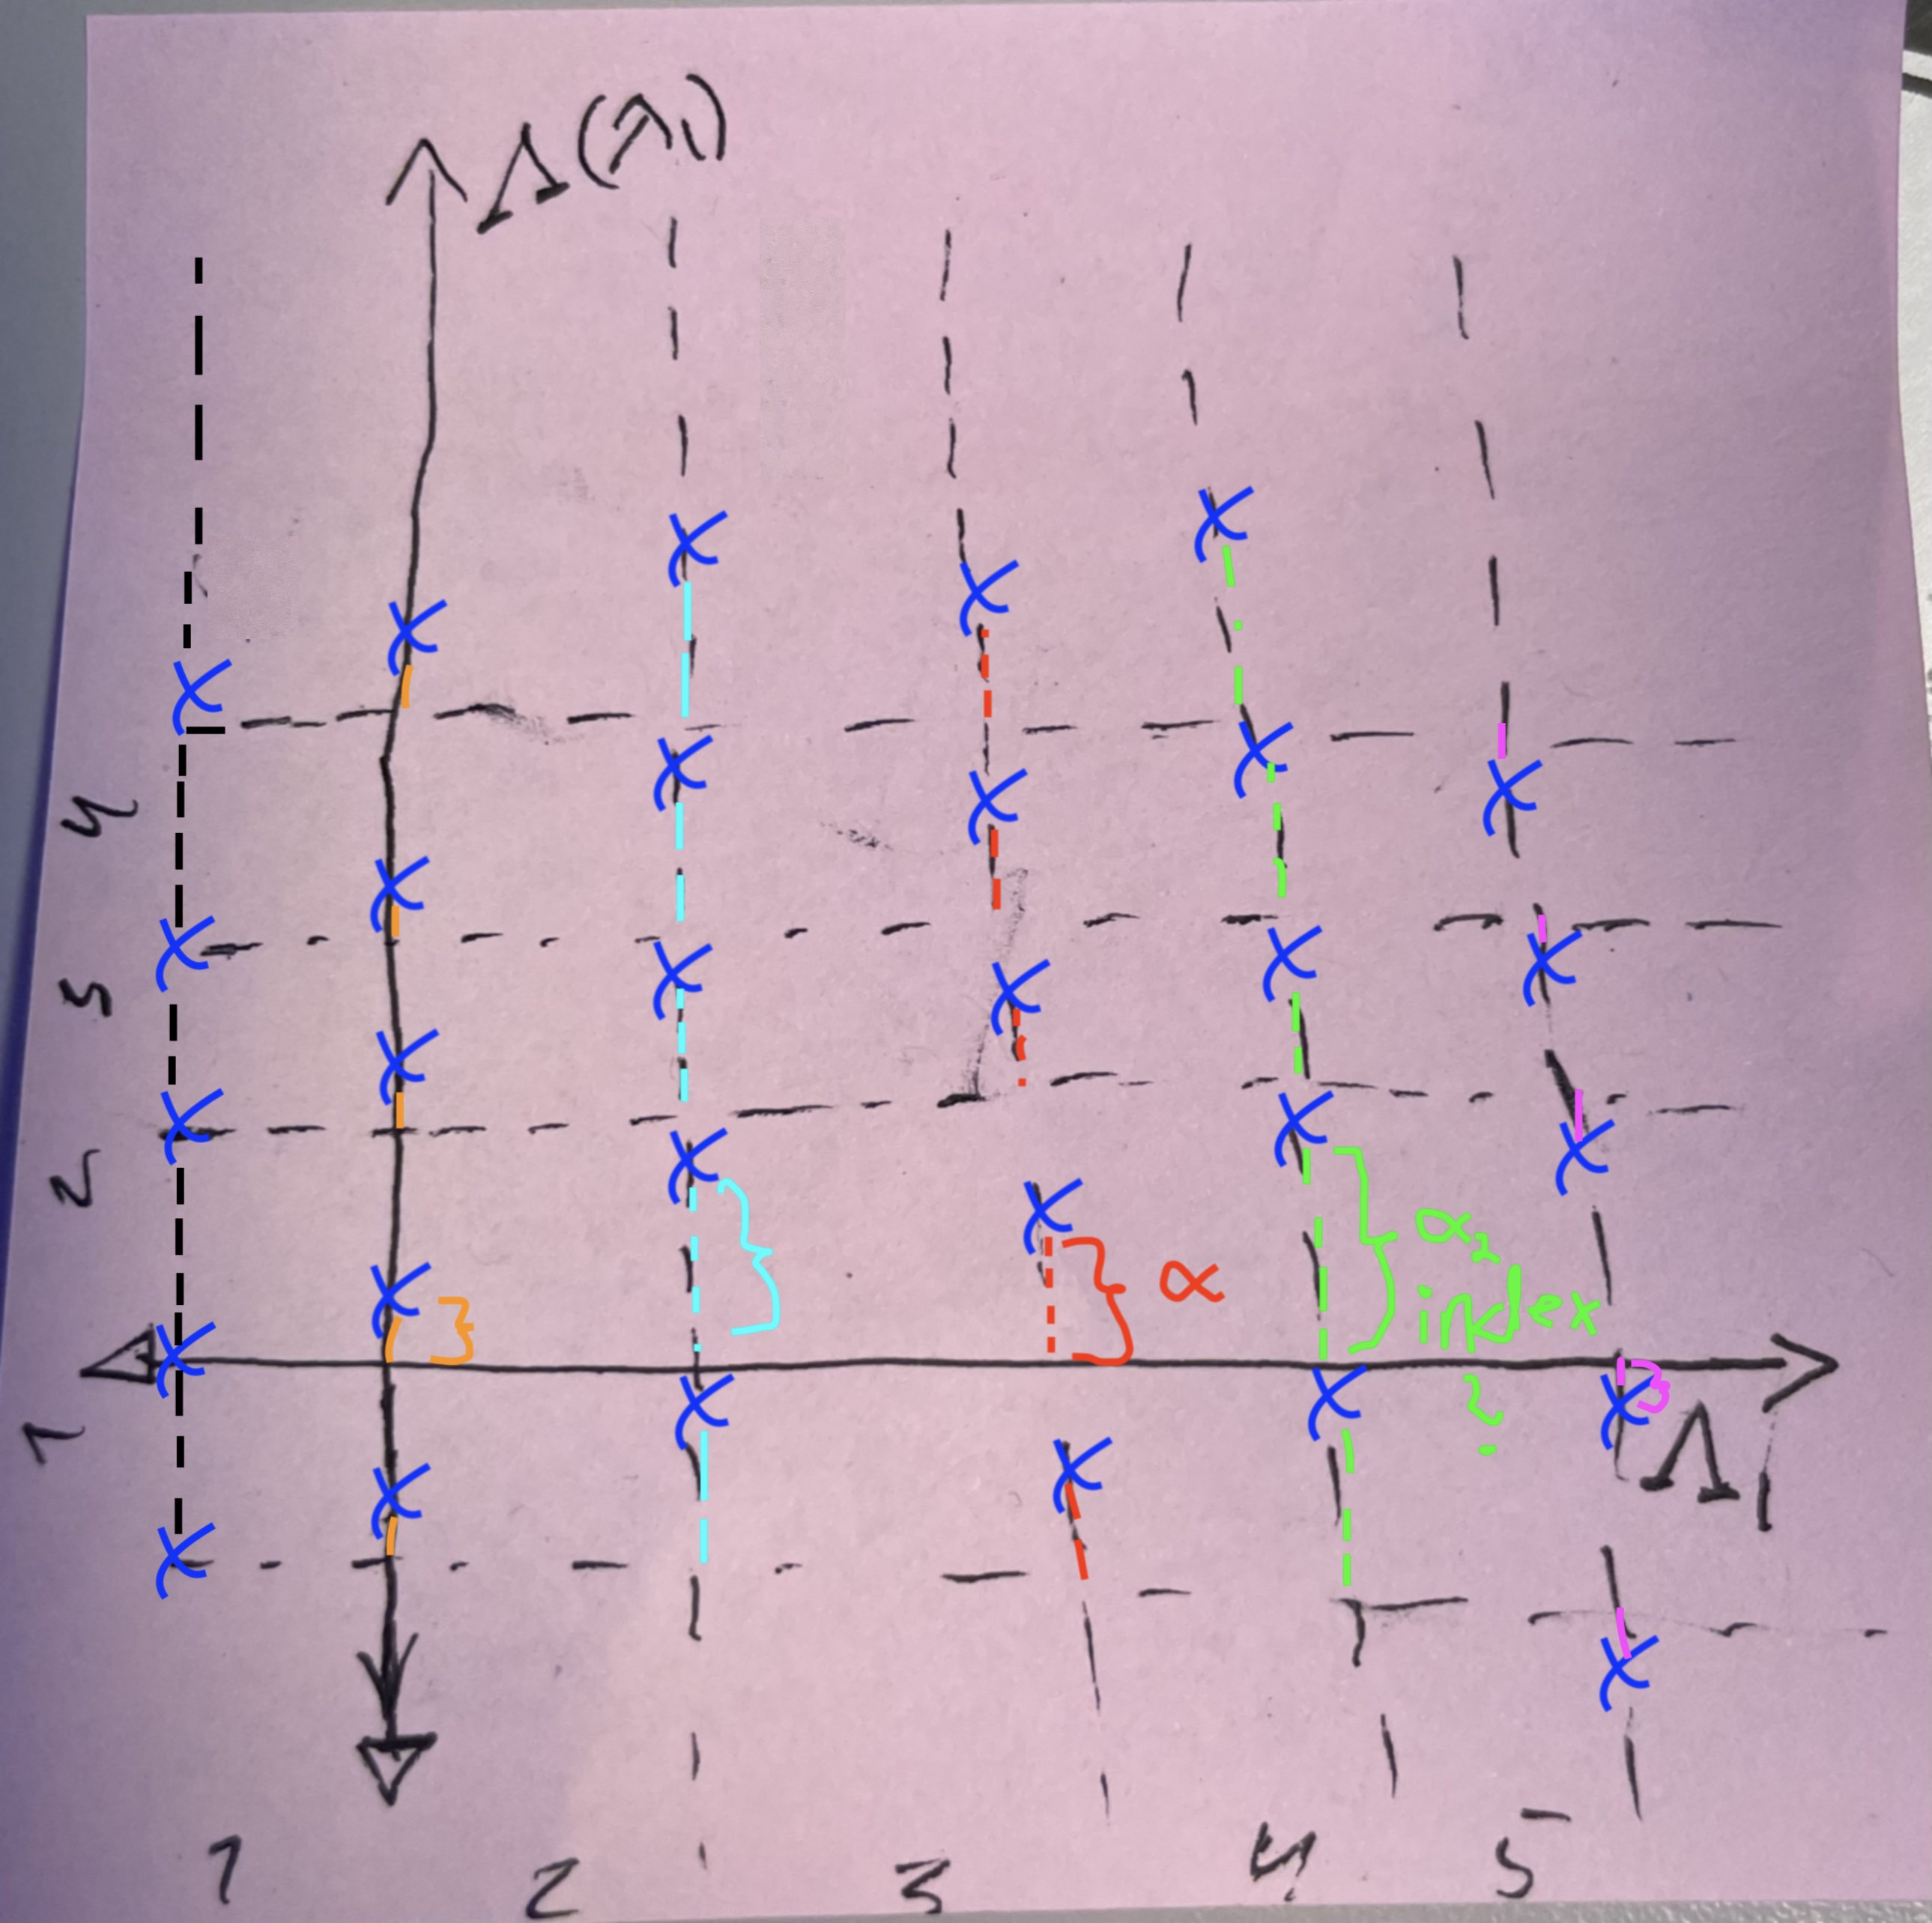 Λ(λ₁)
4
3
2
α
α₂
index
?
Λ₁
1
1 2 3 4 5